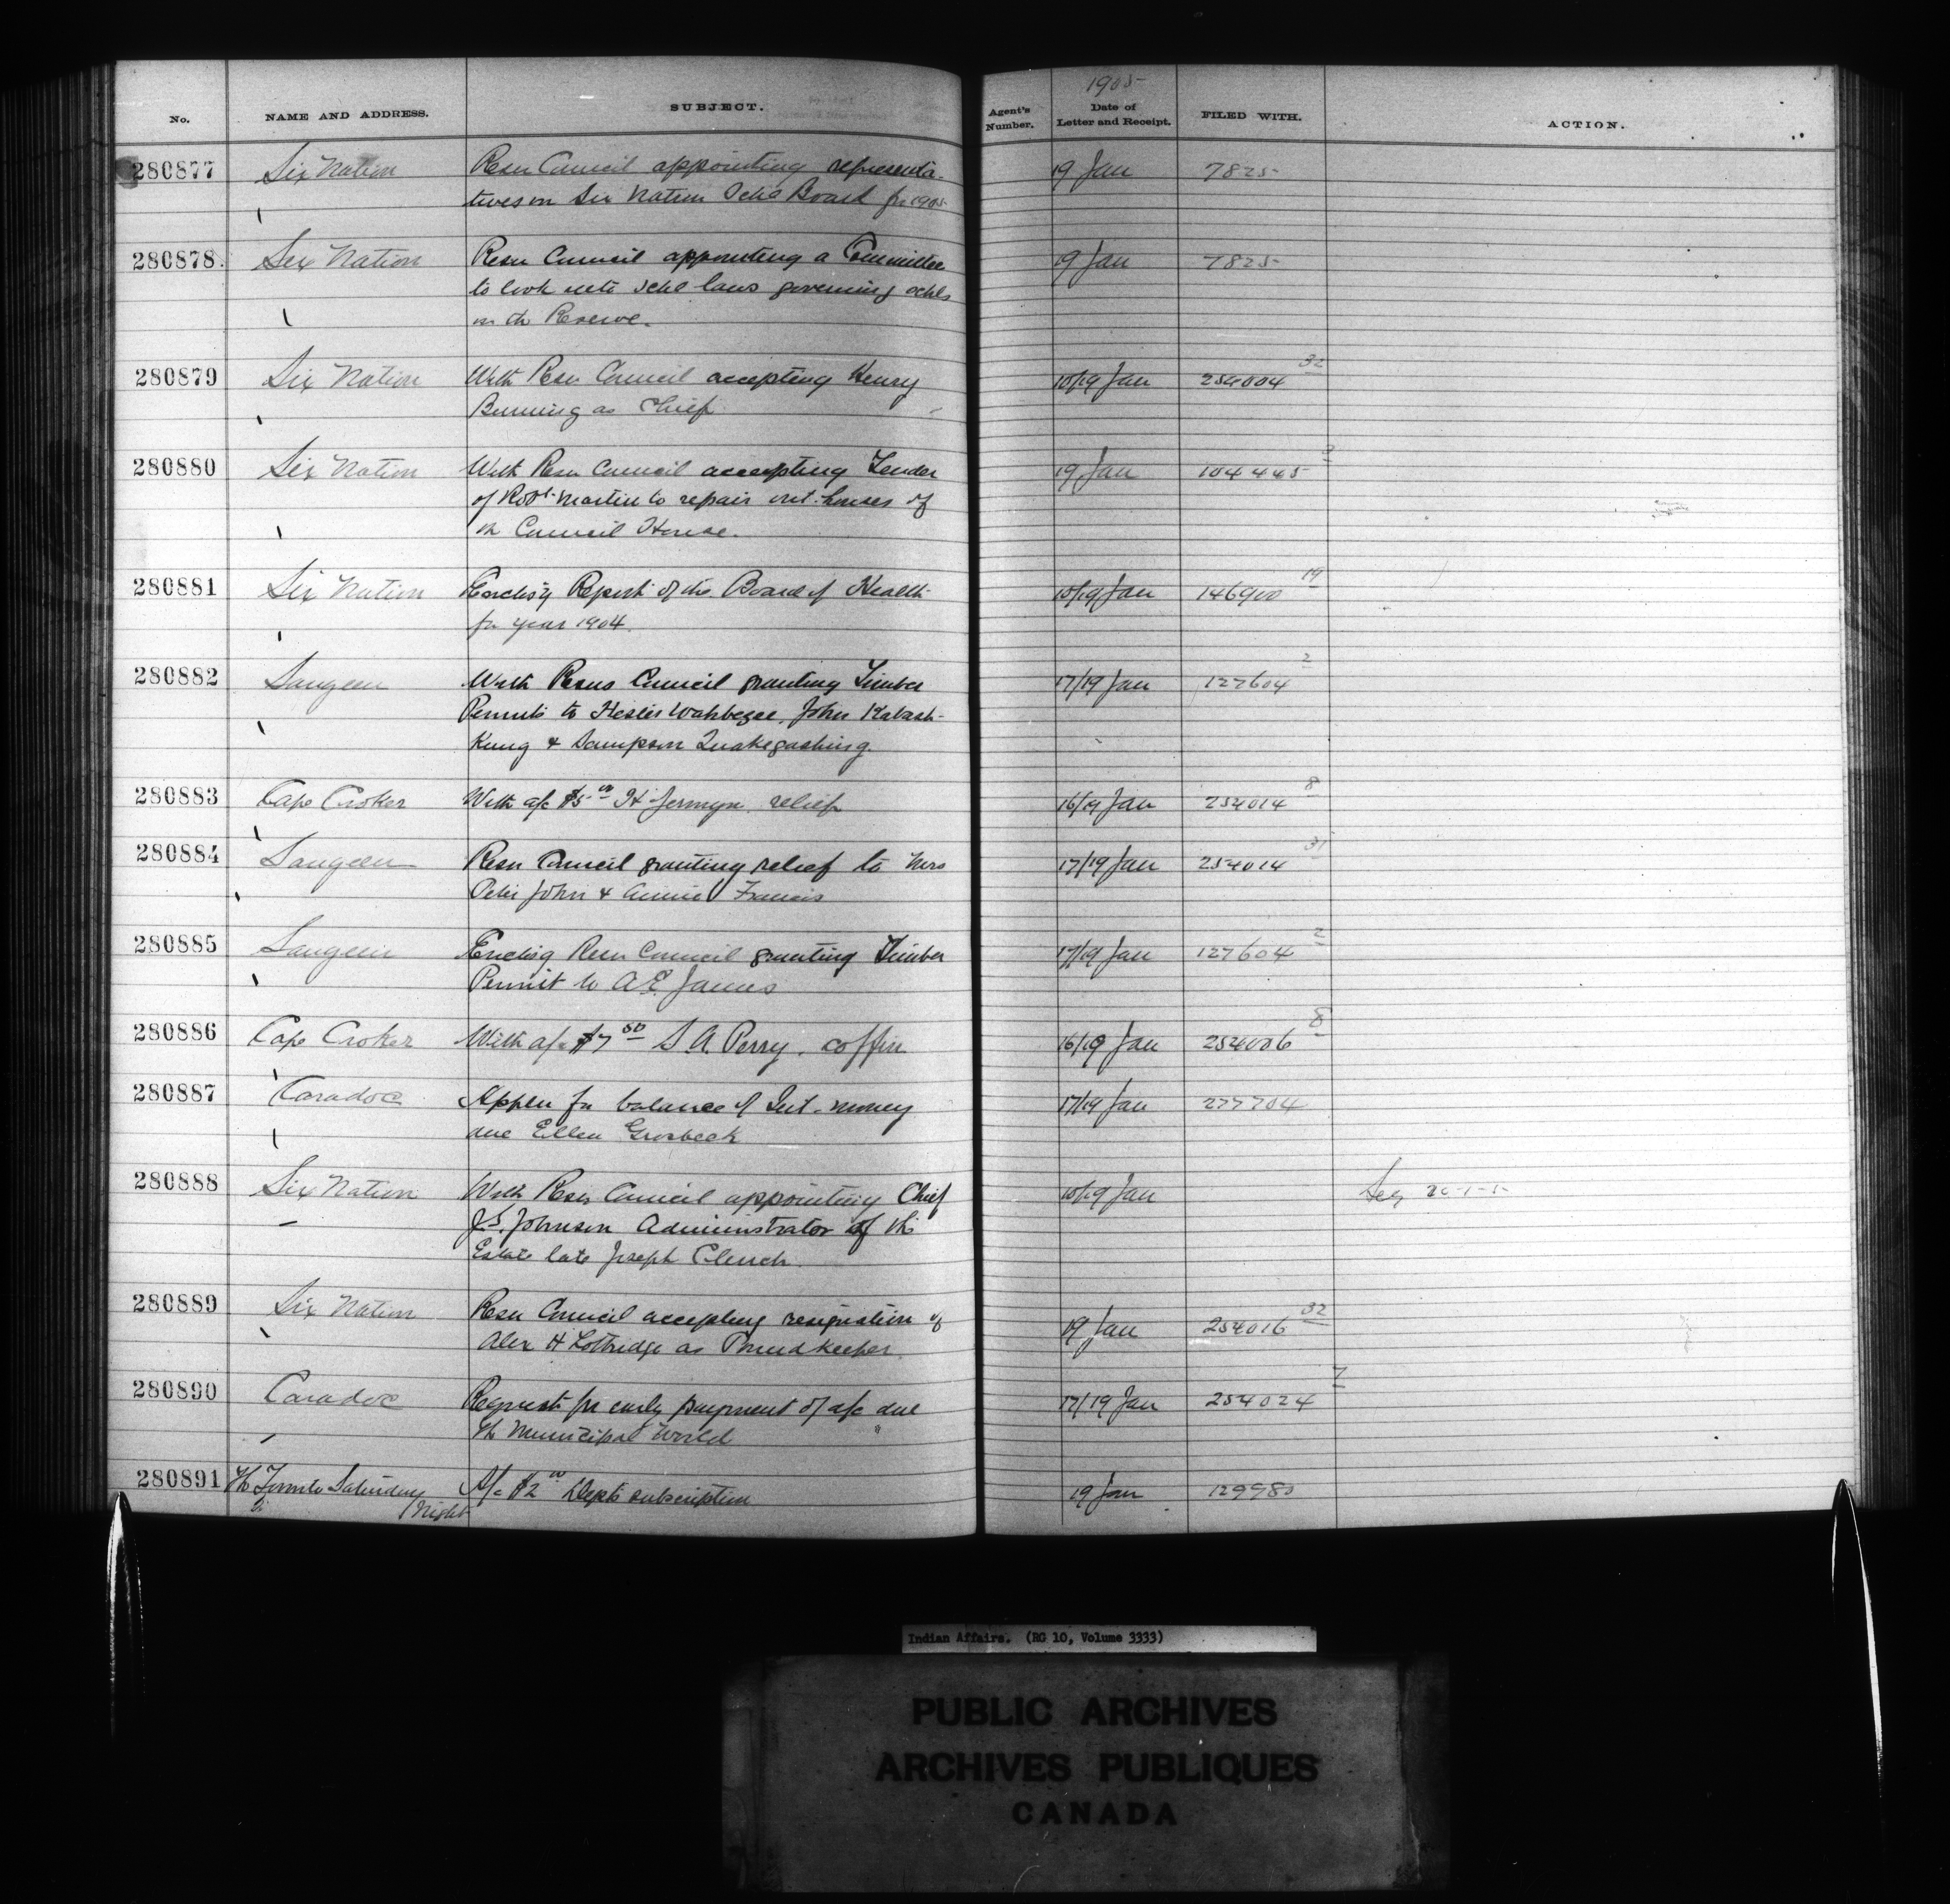 1905
No. NAME AND ADDRESS. SUBJECT. Agent's Number. Date of Letter and Receipt. FILED WITH. ACTION.
280877 Six Nation Resn Council appointing representa- 19 Jan 7825
tives on Six Nation Schl Board for 1905
280878 Six Nation Resn Council appointing a Committee 19 Jan 7825
to look into schl laws governing schls
on the Reserve.
280879 Six Nation With Resn Council accepting Henry 10/19 Jan 254004 32
Burning as Chief
280880 Six Nation With Resn Council accepting Tender 19 Jan 104445 2
of Robt Martin to repair out-houses of
the Council House.
280881 Six Nation Enclosg Report of the Board of Health 10/19 Jan 146900 19
for year 1904.
280882 Saugeen With Resns Council granting Timber 17/19 Jan 127604 2
Permits to Hester Wahbezee, John Kabash-
Kung & Sampson Quakegashing.
280883 Cape Croker With a/c $5 00 H Jermyn. relief 16/19 Jan 254014 8
280884 Saugeen Resn Council granting relief to Mrs 17/19 Jan 254014 31
Peter John & Annie Francis
280885 Saugeen Enclosg Resn Council granting Timber 17/19 Jan 127604 2
Permit to A.E. James
280886 Cape Croker With a/c $7 50 S.A. Perry. coffin 16/19 Jan 254006 8
280887 Caradoc Appln for balance of Int. money 17/19 Jan 277704
due Ellen Grosbeck
280888 Six Nation With Resn Council appointing Chief 10/19 Jan
J.S. Johnson Administrator of the
Estate late Joseph Clench.
280889 Six Nation Resn Council accepting resignation of 19 Jan 254016 32
Alex H Lottridge as Poundkeeper
280890 Caradoc Request for early payment of a/c due 17/19 Jan 254024 7
The Municipal World
280891 The Toronto Saturday A/c $2 00 Depts subscription 19 Jan 129980
Night
Indian Affairs. (RG 10, Volume 3333)
PUBLIC ARCHIVES
ARCHIVES PUBLIQUES
CANADA